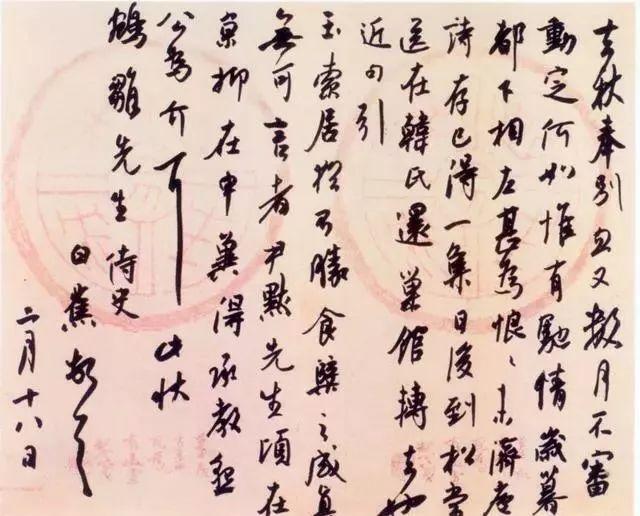 去秋奉別忽又數月不審
動定何如惟有馳情歲暮
都下相左甚為恨〻未濟廬
詩存已得一集日後到松當
送在韓氏還巢館轉去
近句引
玉索居猶不勝食檗之感真
無可言者尹默先生頃在
京抑在申冀得承教懇
公為介 此狀
鵷雛先生侍史
白蕉頓首
二月十八日